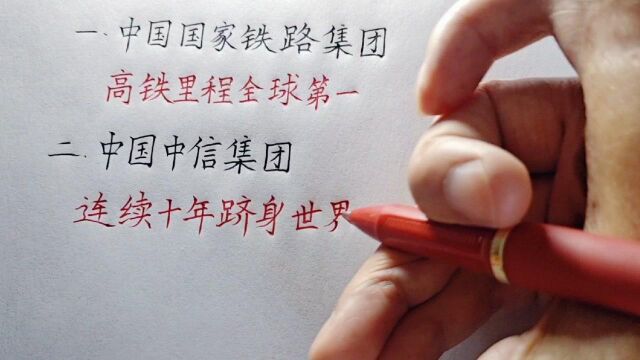 一.中国国家铁路集团
高铁里程全球第一
二.中国中信集团
连续十年跻身世界